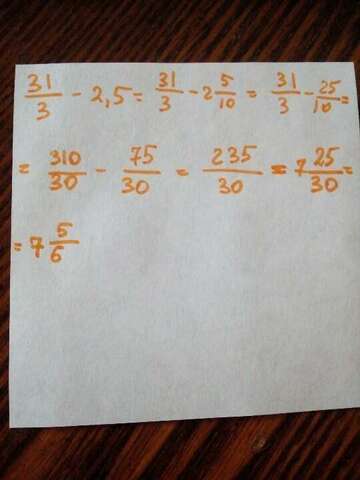 31/3 - 2,5 = 31/3 - 2 5/10 = 31/3 - 25/10 =
= 310/30 - 75/30 = 235/30 = 7 25/30 =
= 7 5/6